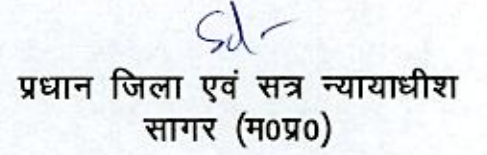 Sd-
प्रधान जिला एवं सत्र न्यायाधीश
सागर (म०प्र०)